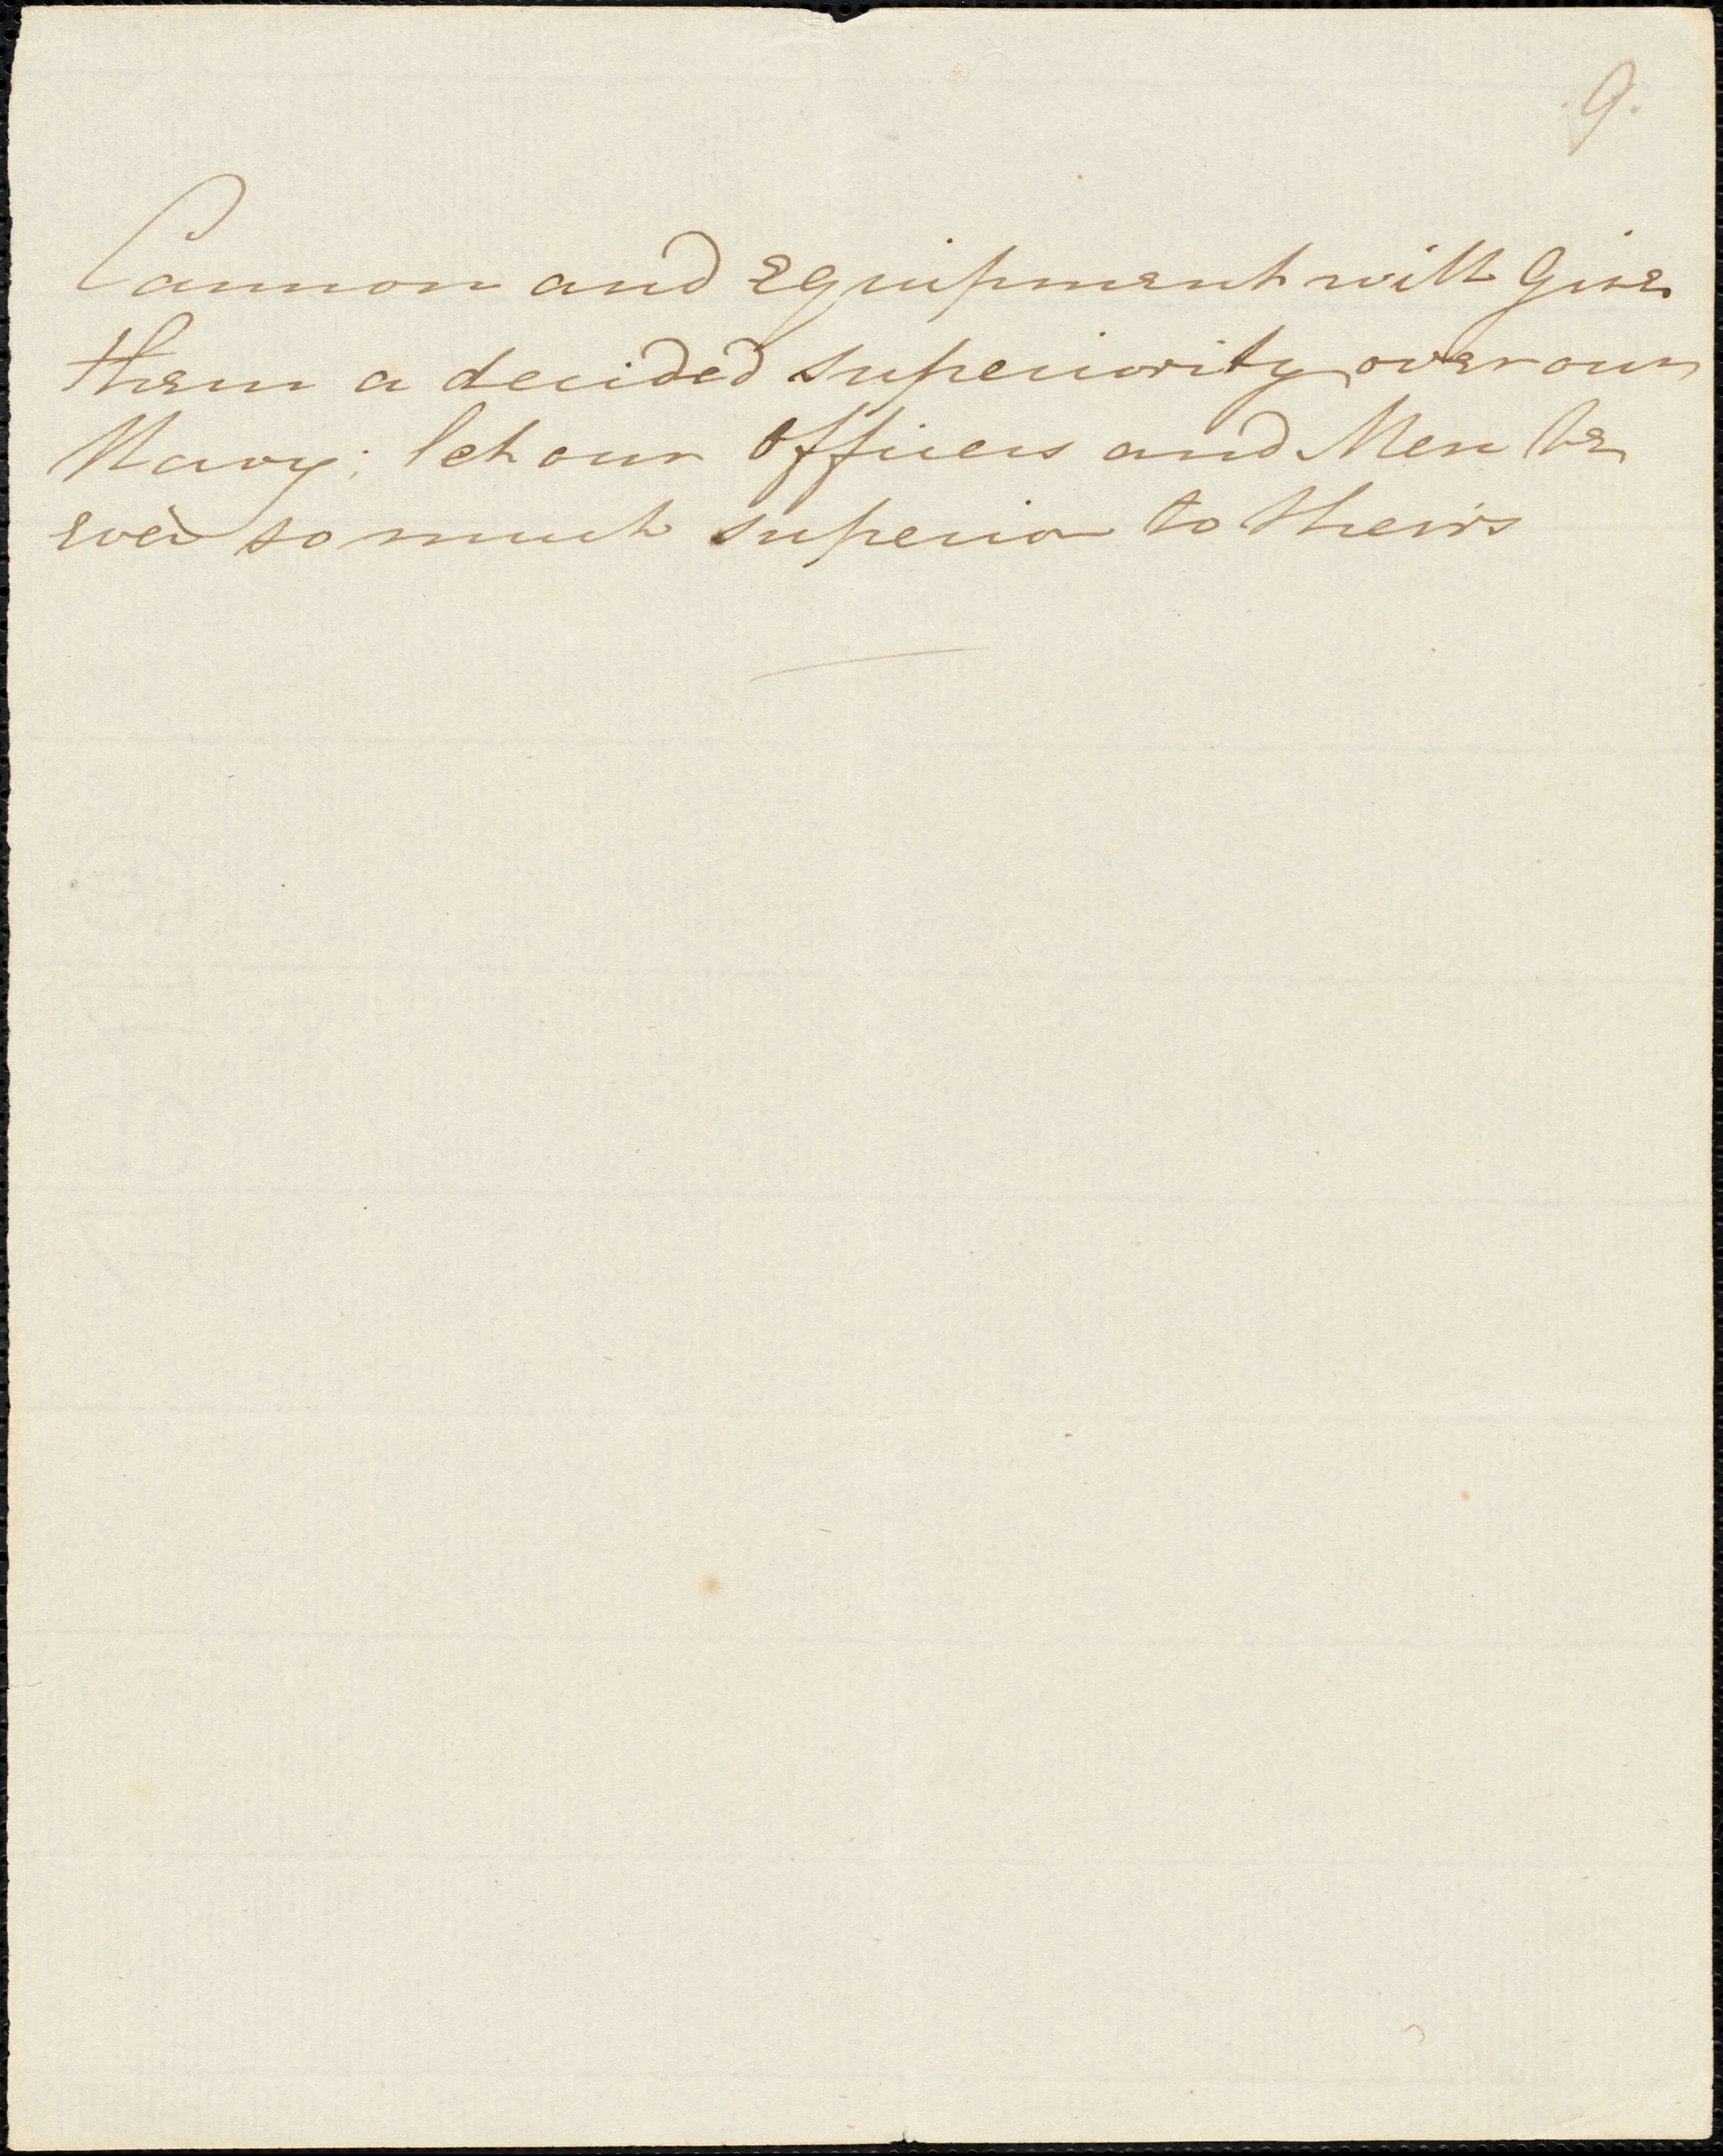 .9.
Cannon and Equipment will Give
them a decided superiority over our
Navy; let our Officers and Men be
ever so much superior to their's